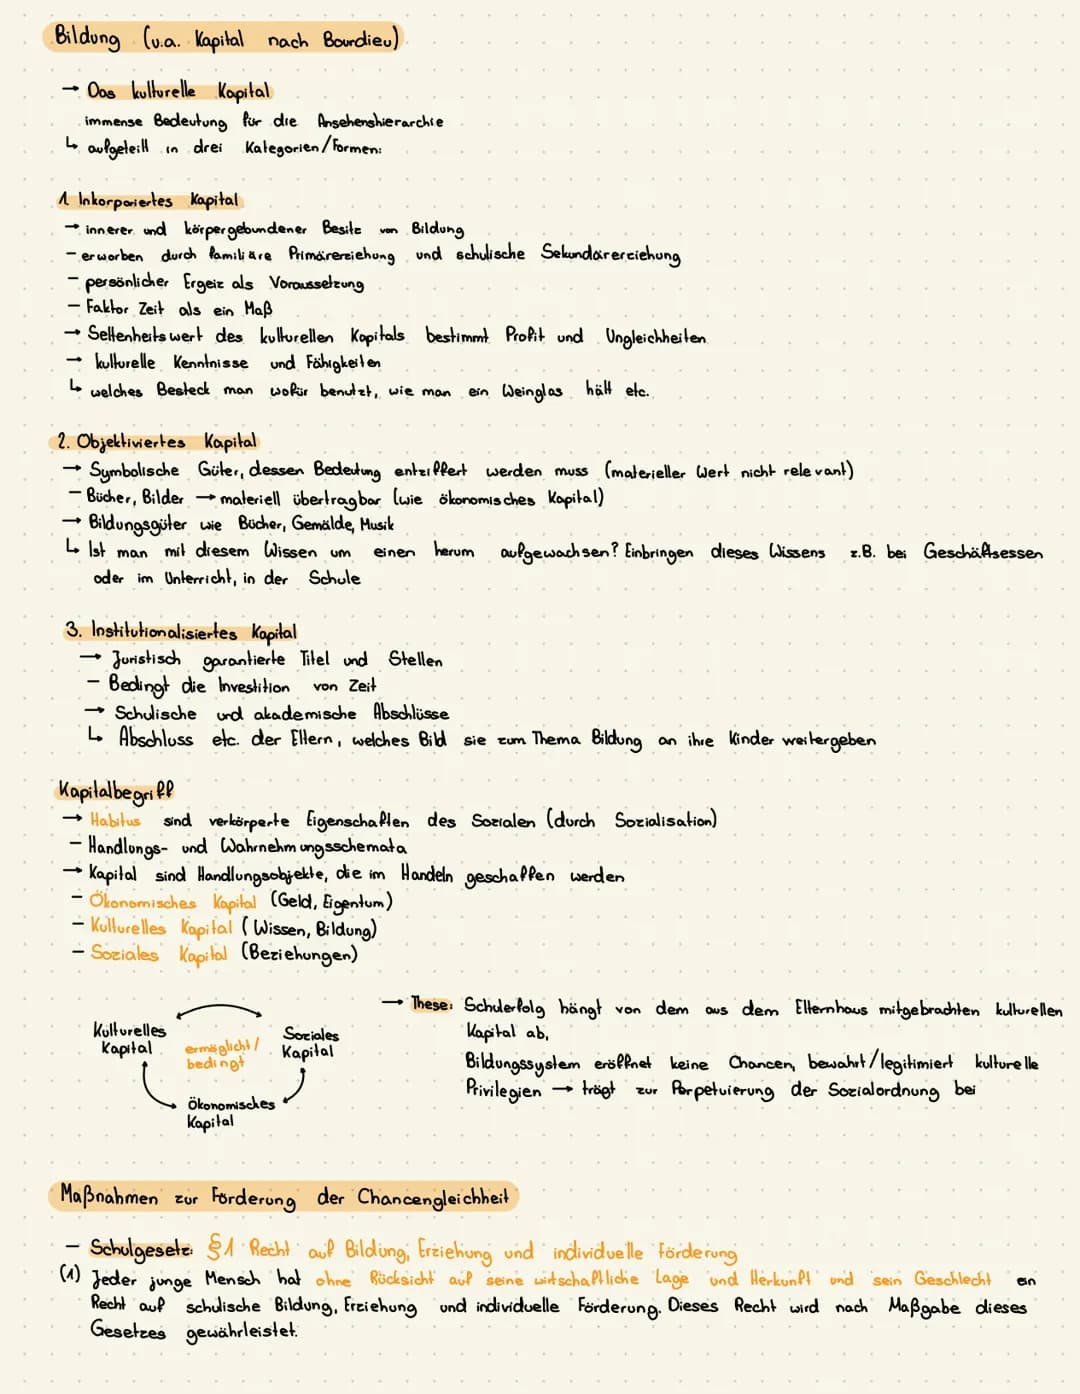 Bildung (u.a. Kapital nach Bourdieu)
→ Das kulturelle Kapital
immense Bedeutung für die Ansehenshierarchie
↳ aufgeteilt in drei Kategorien/Formen:
1. Inkorporiertes Kapital
→ innerer und körpergebundener Besitz von Bildung
- erworben durch familiäre Primärerziehung und schulische Sekundärerziehung
- persönlicher Ergeiz als Voraussetzung
- Faktor Zeit als ein Maß
→ Seltenheitswert des kulturellen Kapitals bestimmt Profit und Ungleichheiten
→ kulturelle Kenntnisse und Fähigkeiten
↳ welches Besteck man wofür benutzt, wie man ein Weinglas hält etc.
2. Objektiviertes Kapital
→ Symbolische Güter, dessen Bedeutung entziffert werden muss (materieller Wert nicht relevant)
- Bücher, Bilder → materiell übertragbar (wie ökonomisches Kapital)
→ Bildungsgüter wie Bücher, Gemälde, Musik
↳ Ist man mit diesem Wissen um einen herum aufgewachsen? Einbringen dieses Wissens z.B. bei Geschäftsessen
oder im Unterricht, in der Schule
3. Institutionalisiertes Kapital
→ Juristisch garantierte Titel und Stellen
- Bedingt die Investition von Zeit
→ Schulische und akademische Abschlüsse
↳ Abschluss etc. der Eltern, welches Bild sie zum Thema Bildung an ihre Kinder weitergeben
Kapitalbegriff
→ Habitus sind verkörperte Eigenschaften des Sozialen (durch Sozialisation)
- Handlungs- und Wahrnehmungsschemata
→ Kapital sind Handlungsobjekte, die im Handeln geschaffen werden
- Ökonomisches Kapital (Geld, Eigentum)
- Kulturelles Kapital (Wissen, Bildung)
- Soziales Kapital (Beziehungen)
Kulturelles
Kapital
ermöglicht/
bedingt
Soziales
Kapital
Ökonomisches
Kapital
→ These: Schulerfolg hängt von dem aus dem Elternhaus mitgebrachten kulturellen
Kapital ab,
Bildungssystem eröffnet keine Chancen, bewahrt/legitimiert kulturelle
Privilegien → trägt zur Perpetuierung der Sozialordnung bei
Maßnahmen zur Förderung der Chancengleichheit
- Schulgesetz: §1 Recht auf Bildung, Erziehung und individuelle Förderung
(1) Jeder junge Mensch hat ohne Rücksicht auf seine wirtschaftliche Lage und Herkunft und sein Geschlecht ein
Recht auf schulische Bildung, Erziehung und individuelle Förderung. Dieses Recht wird nach Maßgabe dieses
Gesetzes gewährleistet.